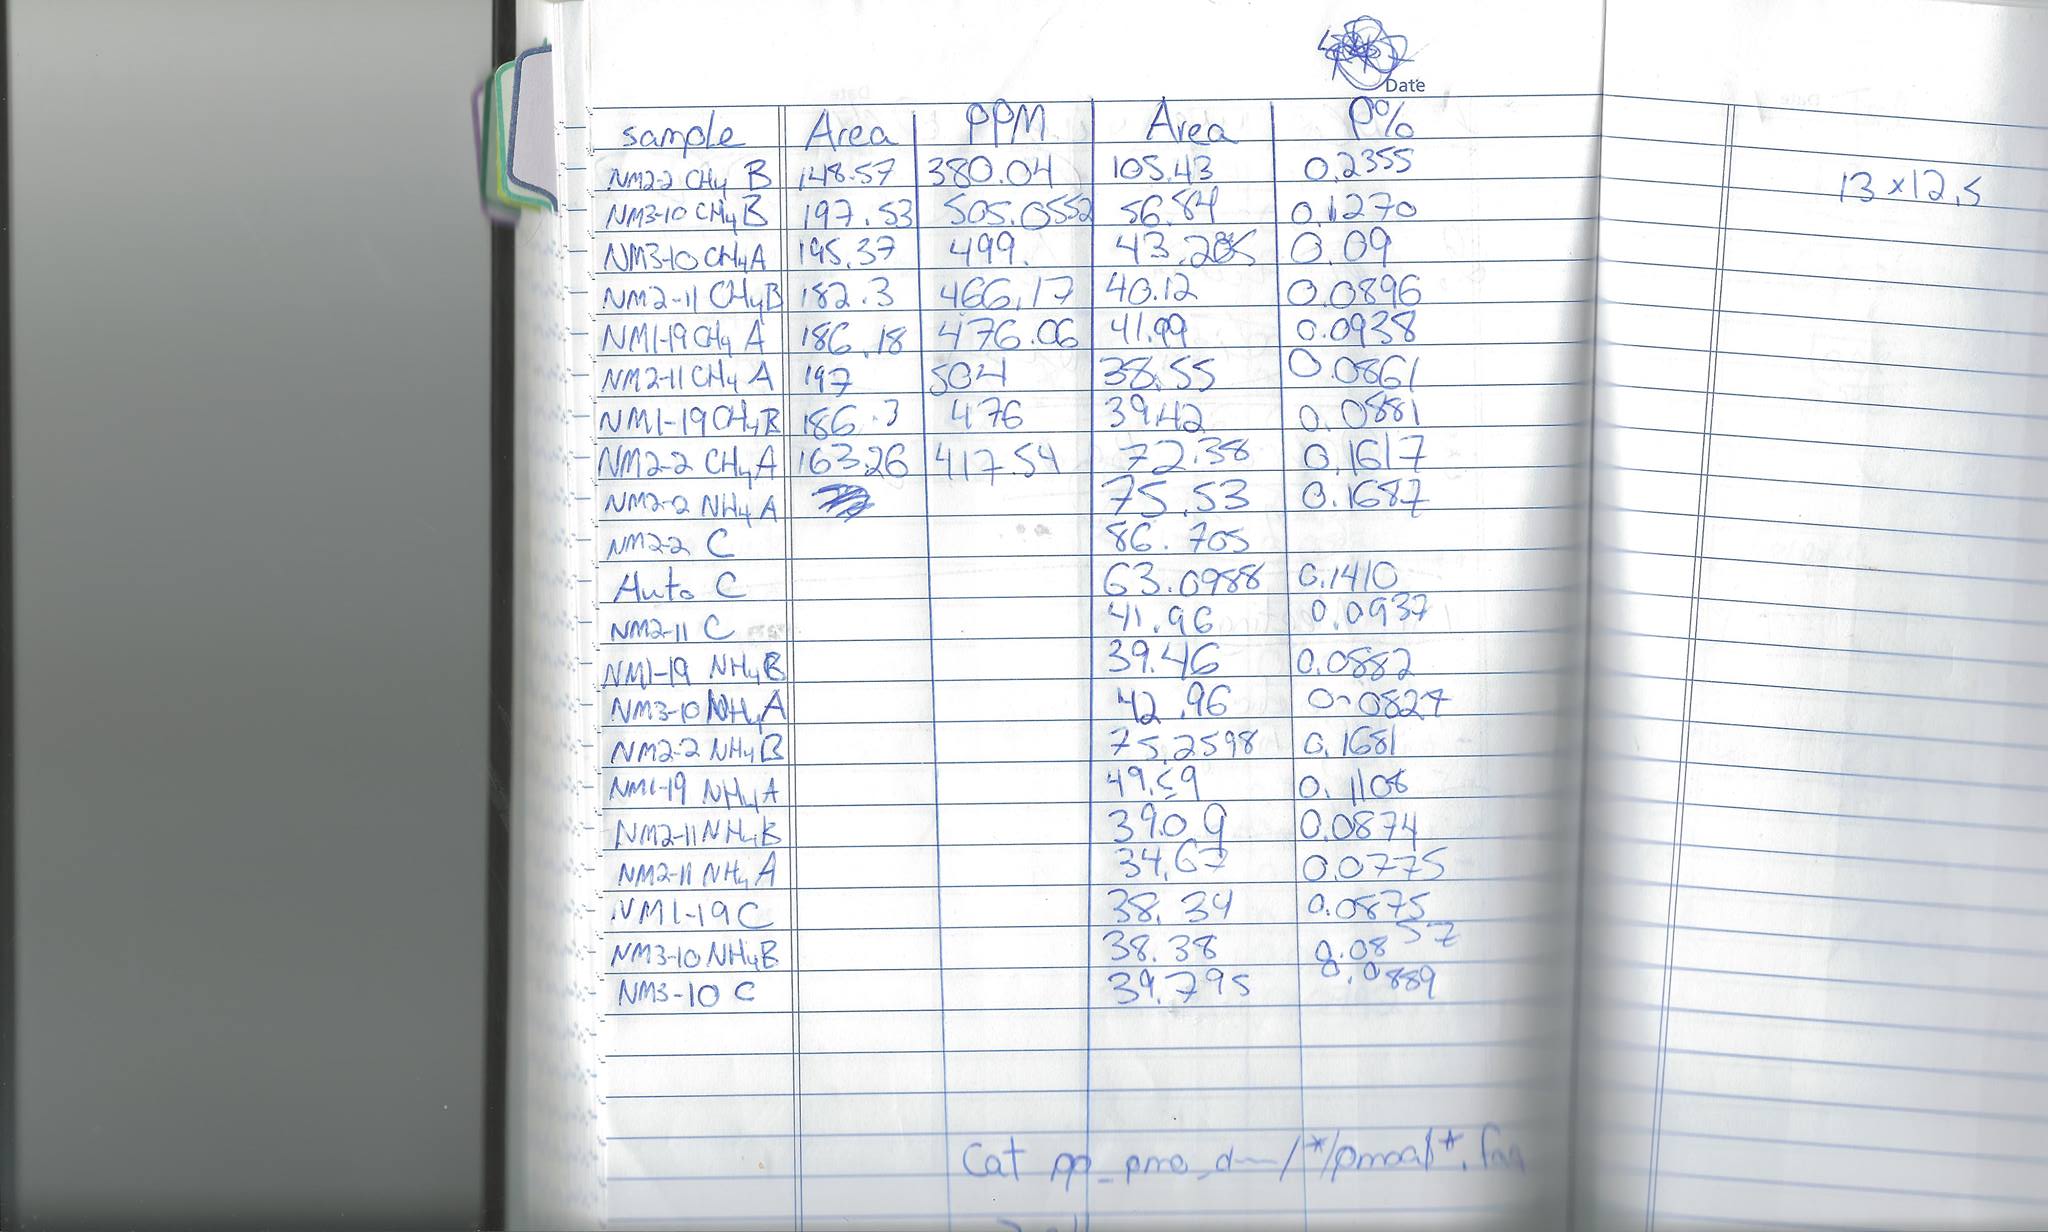 Date
sample Area PPM Area P%
NM2-2 CH4 B 148.57 380.04 105.43 0.2355
NM3-10 CH4 B 197.53 505.0552 56.84 0.1270
NM3-10 CH4 A 195.37 499. 43.285 0.09
NM2-11 CH4 B 182.3 466.17 40.12 0.0896
NM1-19 CH4 A 186.18 476.06 41.99 0.0938
NM2-11 CH4 A 197 504 38.55 0.0861
NM1-19 CH4 B 186.3 476 39.42 0.0881
NM2-2 CH4 A 163.26 417.54 72.38 0.1617
NM2-2 NH4 A 75.53 0.1687
NM2-2 C 86.705
Auto C 63.0988 0.1410
NM2-11 C 41.96 0.0937
NM1-19 NH4 B 39.46 0.0882
NM3-10 NH4 A 42.96 0.0827
NM2-2 NH4 B 75.2598 0.1681
NM1-19 NH4 A 49.59 0.1108
NM2-11 NH4 B 39.09 0.0874
NM2-11 NH4 A 34.67 0.0775
NM1-19 C 38.34 0.0875
NM3-10 NH4 B 38.38 0.0857
NM3-10 C 39.795 0.0889
13 x 12.5
Cat